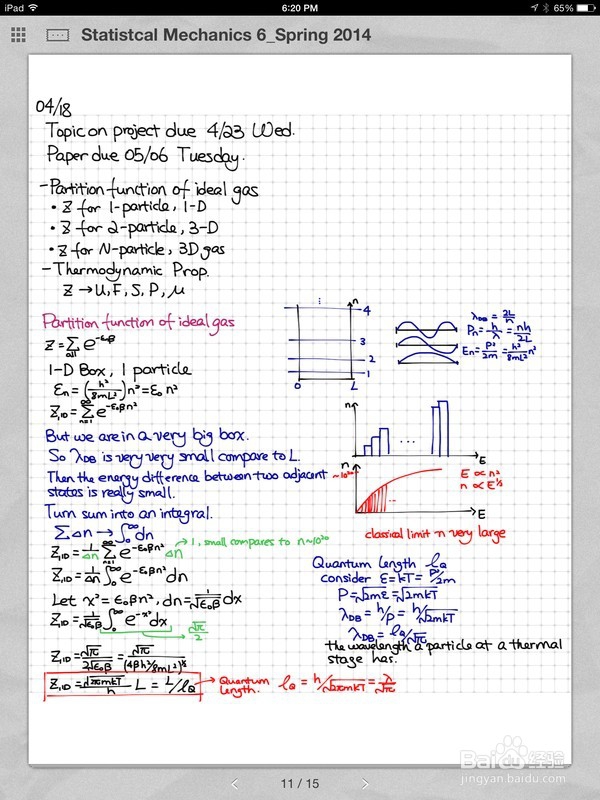 iPad
6:20 PM
65%
Statistcal Mechanics 6_Spring 2014
04/18
Topic on project due 4/23 Wed.
Paper due 05/06 Tuesday.
- Partition function of ideal gas
• Z for 1-particle, 1-D
• Z for 2-particle, 3-D
• Z for N-particle, 3D gas
- Thermodynamic Prop.
Z → U, F, S, P, μ
Partition function of ideal gas
Z = Σ_all e^(-εβ)
1-D Box, 1 particle
εn = (h²/8mL²) n² = ε₀ n²
Z₁D = Σ_(n=1)^∞ e^(-ε₀βn²)
But we are in a very big box.
So λDB is very very small compare to L.
Then the energy difference between two adjacent
states is really small.
Turn sum into an integral.
Σ Δn → ∫₀^∞ dn
Z₁D = 1/Δn Σ_(n=1)^∞ e^(-ε₀βn²) Δn → 1, small compares to n~10¹⁰
Z₁D = 1/Δn ∫₀^∞ e^(-ε₀βn²) dn
Let x² = ε₀βn², dn = 1/√(ε₀β) dx
Z₁D = 1/√(ε₀β) ∫₀^∞ e^(-x²) dx → √π/2
Z₁D = √π/(2√(ε₀β)) = √π/(4βh²/8mL²)^(1/2)
Z₁D = √(2πmkT)/h L = L/lQ → Quantum length.
lQ = h/√(2πmkT) = λ/√π
n
4
3
2
1
0 L
λDB = 2L/n
Pn = h/λ = nh/2L
En = p²/2m = h²/8mL² n²
n
E
n
~10¹⁰
E
E ∝ n²
n ∝ E^(1/2)
classical limit n very large
Quantum length lQ
consider E = kT = p²/2m
P = √(2mE) = √(2mkT)
λDB = h/p = h/√(2mkT)
λDB = lQ/√π
the wavelength a particle at a thermal
stage has.
11 / 15
Baidu经验
jingyan.baidu.com